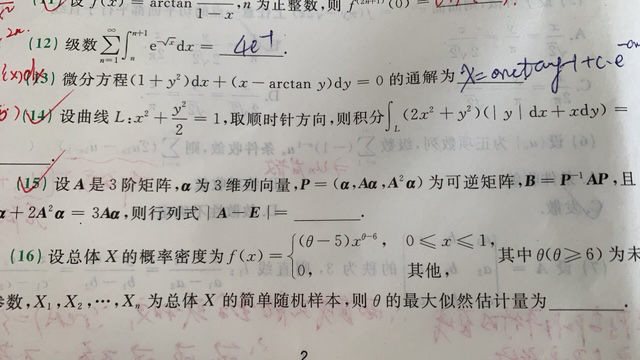 (11) 设 f(x) = arctan 1−x, n 为正整数, 则 f^(2n+1)(0) =
(12) 级数 ∑_{n=1}^{∞} ∫_n^{n+1} e^{-√x} dx = 4e⁻¹.
(13) 微分方程(1+y²)dx+(x−arctan y)dy = 0 的通解为 x=arctany-1+c·e^
(14) 设曲线 L: x² + y²/2 = 1, 取顺时针方向, 则积分∫_L (2x² + y²)(|y|dx + xdy) =
.
(15) 设 A 是 3 阶矩阵, α 为 3 维列向量, P = (α, Aα, A²α) 为可逆矩阵, B = P⁻¹AP, 且
α + 2A²α = 3Aα, 则行列式 |A − E| = ________.
(16) 设总体 X 的概率密度为 f(x) = { (θ−5)x^{θ−6}, 0 ≤ x ≤ 1, 0, 其他, 其中 θ(θ ≥ 6) 为未
参数, X₁, X₂, ⋯, Xₙ 为总体 X 的简单随机样本, 则 θ 的最大似然估计量为________.
2